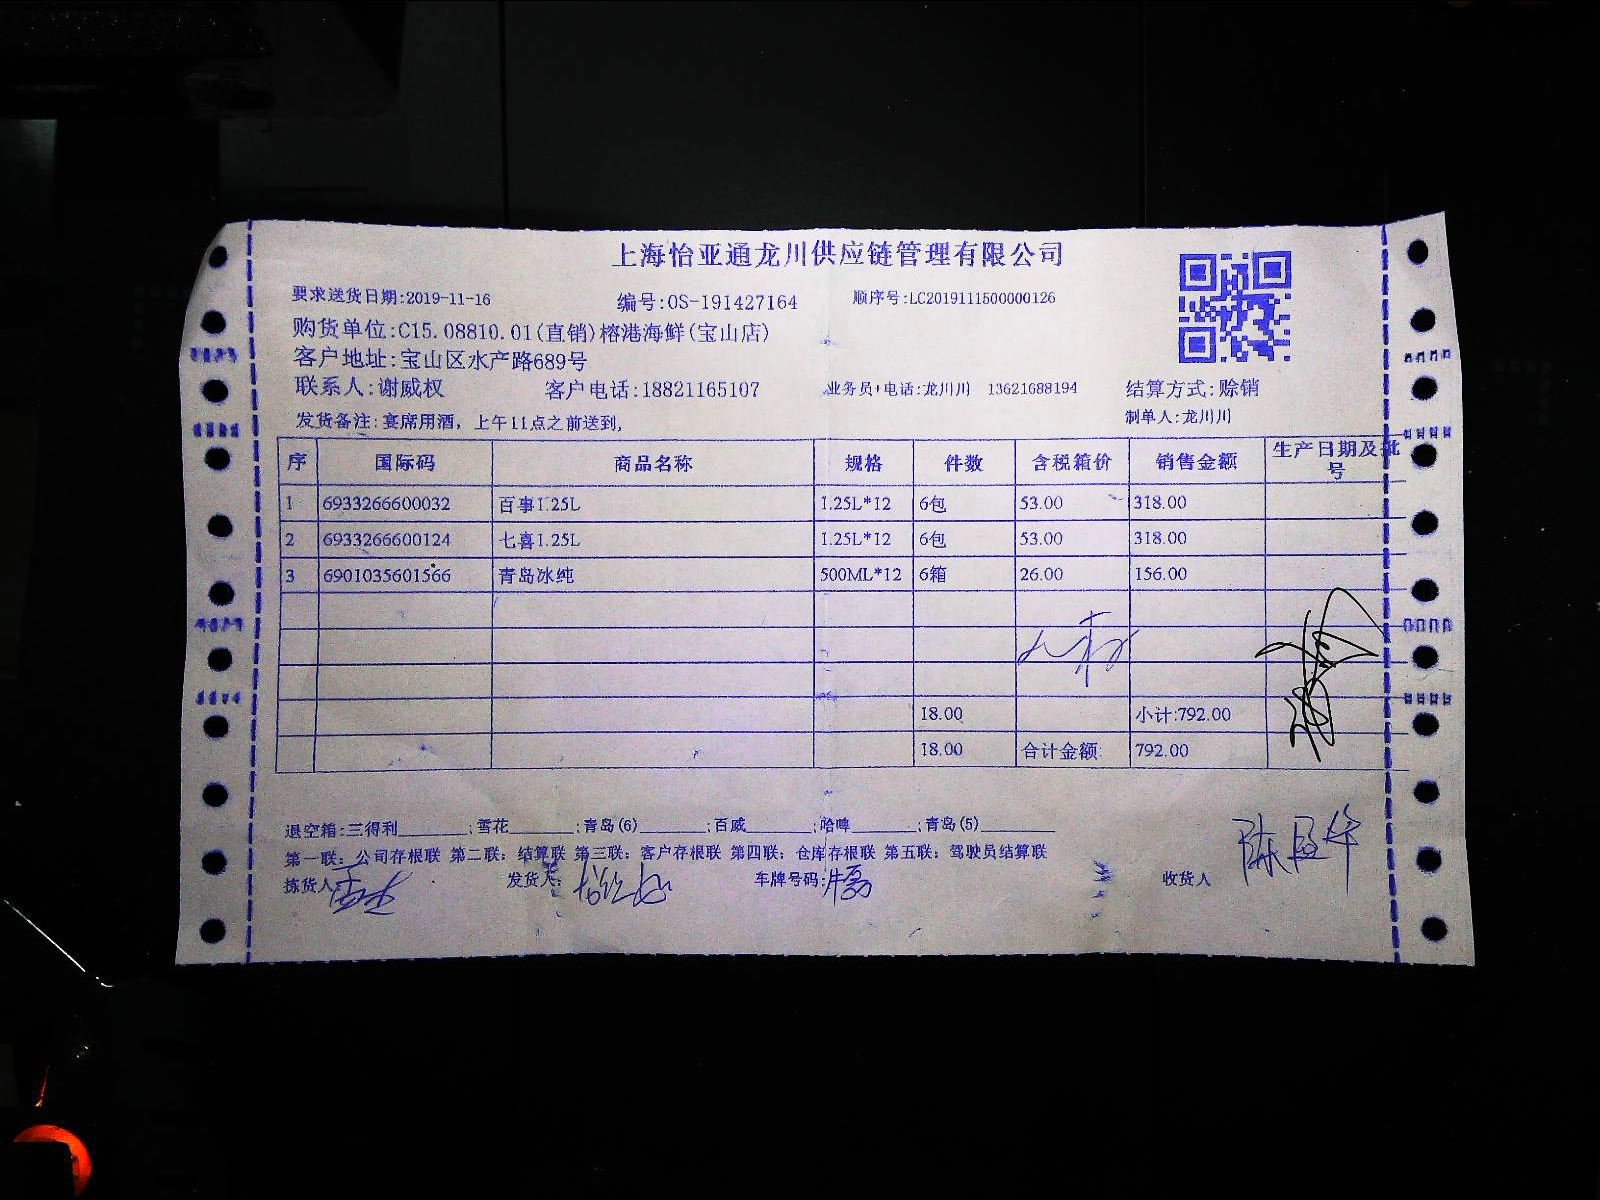 上海怡亚通龙川供应链管理有限公司
要求送货日期:2019-11-16 编号:OS-191427164 顺序号:LC2019111500000126
购货单位:C15.08810.01(直销)榕港海鲜(宝山店)
客户地址:宝山区水产路689号
联系人:谢威权 客户电话:18821165107 业务员+电话:龙川川 13621688194 结算方式:赊销
发货备注:宴席用酒，上午11点之前送到, 制单人:龙川川
序 国际码 商品名称 规格 件数 含税箱价 销售金额 生产日期及批号
1 6933266600032 百事1.25L 1.25L*12 6包 53.00 318.00
2 6933266600124 七喜1.25L 1.25L*12 6包 53.00 318.00
3 6901035601566 青岛冰纯 500ML*12 6箱 26.00 156.00
18.00 小计:792.00
18.00 合计金额: 792.00
退空箱:三得利________;雪花________;青岛(6)________;百威________;哈啤________;青岛(5)________
第一联：公司存根联 第二联：结算联 第三联：客户存根联 第四联：仓库存根联 第五联：驾驶员结算联
拣货人 发货人: 车牌号码: 收货人